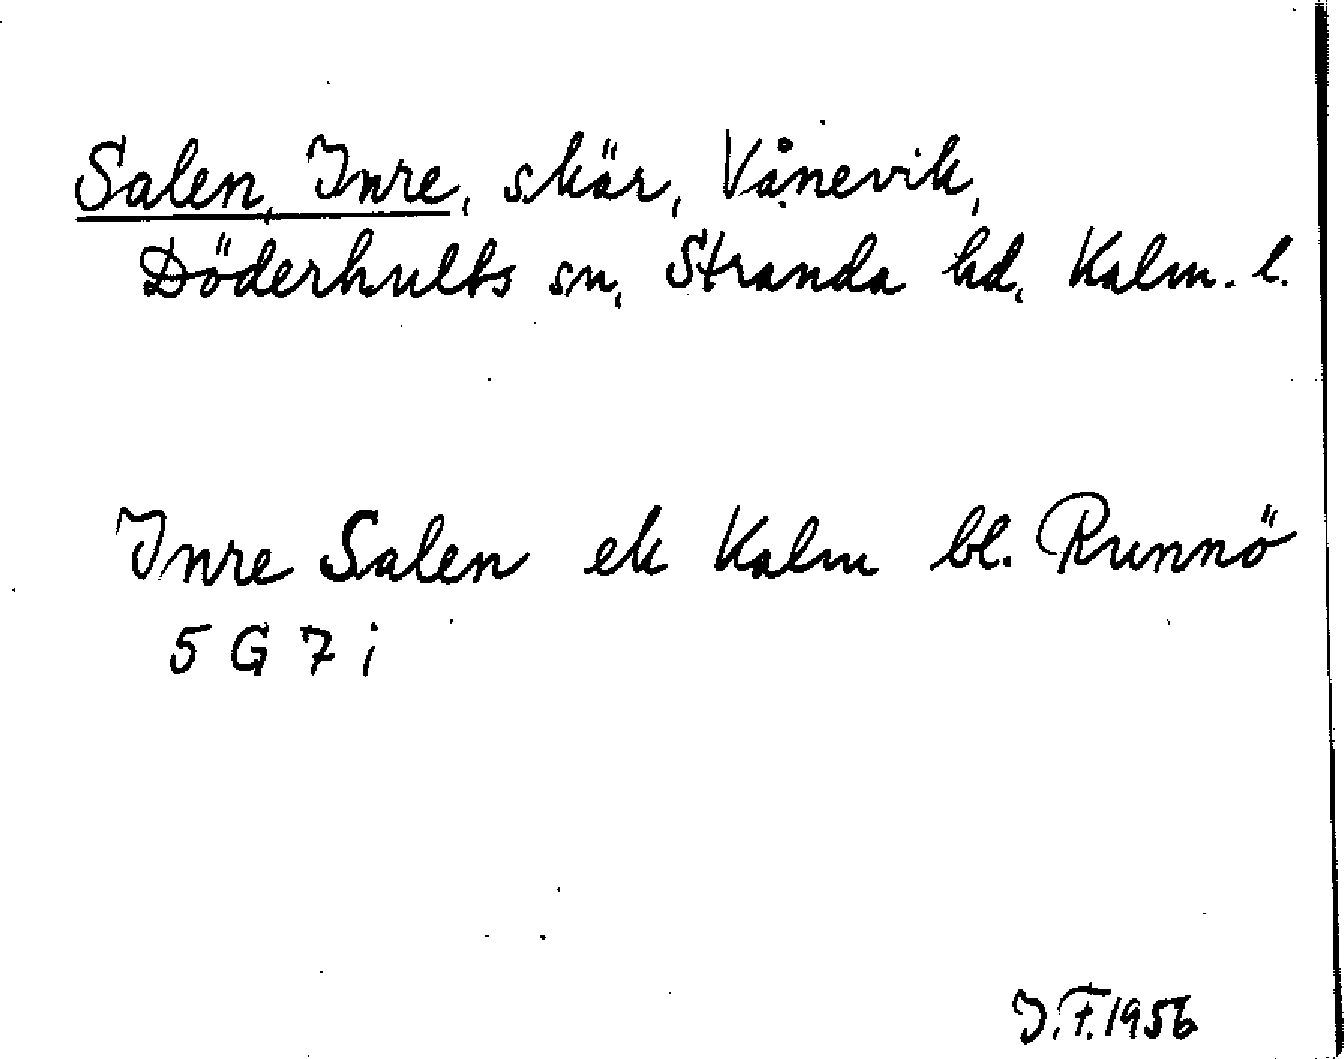 Salen, Inre, skär, Vånevik,
Döderhults sn, Stranda hd, Kalm. l.
Inre Salen ek Kalm bl. Runnö
5 G 7 i
I.F. 1956